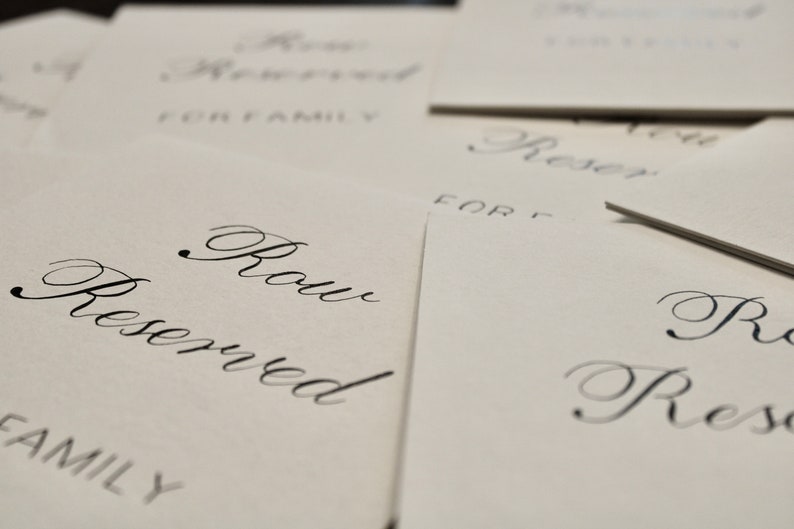 Row
Reserved
FOR FAMILY
Row
Reserved
FOR FAMILY
You
Reser
FOR F
Row
Reserved
FAMILY
Ro
Rese